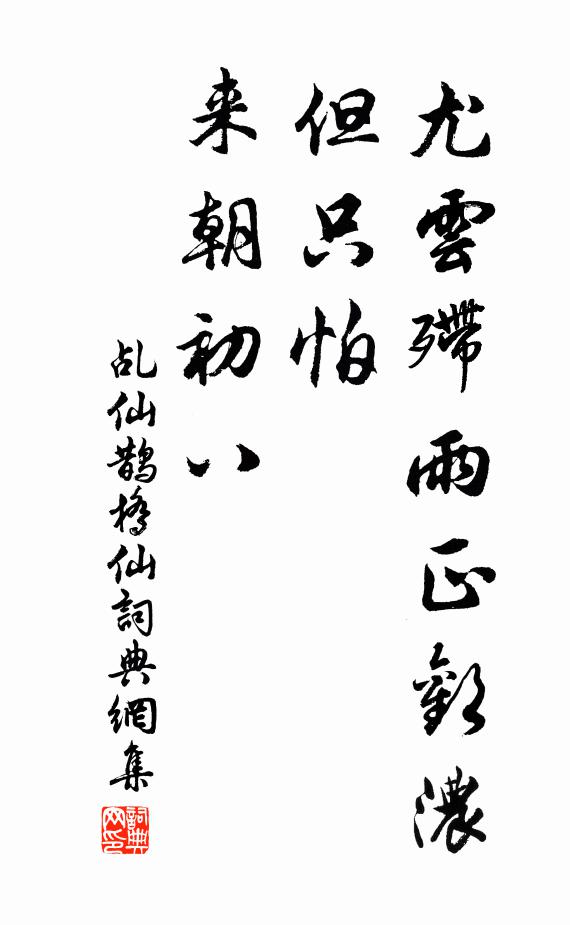 尤雲殢雨正歡濃
但只怕
来朝初八
乩仙鵲橋仙詞典網集
詞典网印